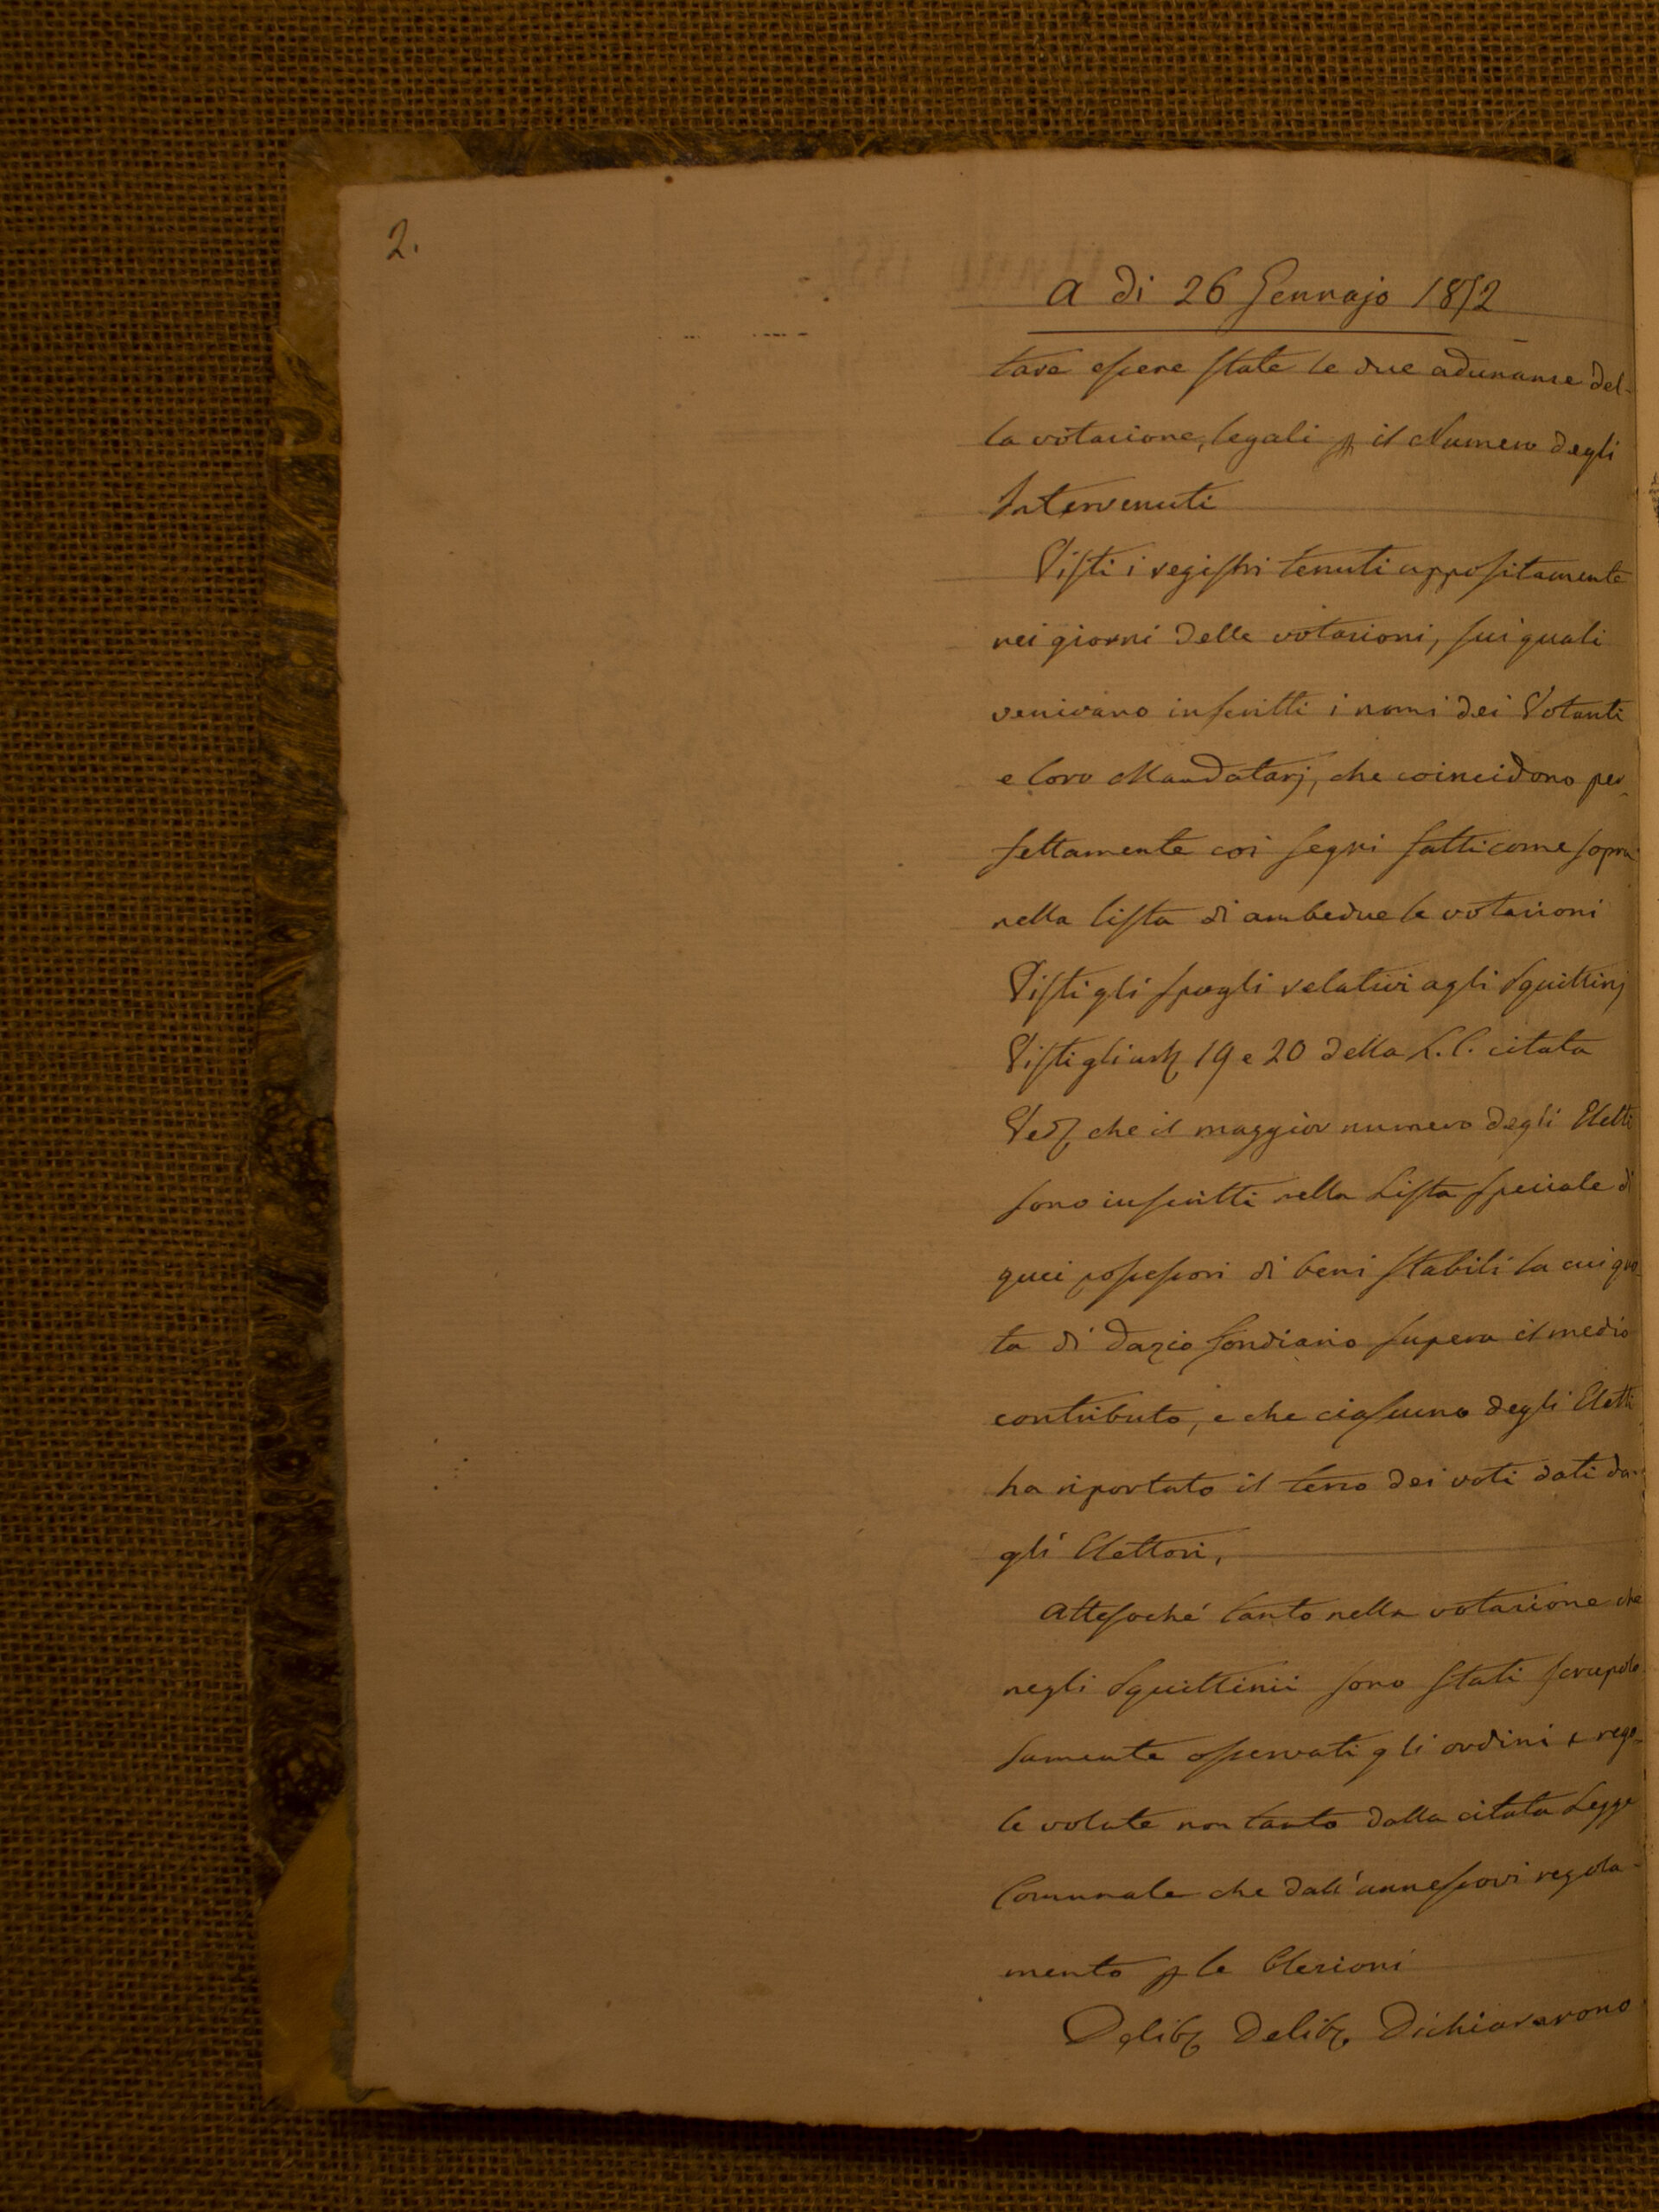 2.
A di 26 Gennajo 1852
tare essere state le due adunanze del-
la votazione, legali p il Numero degli
Intervenuti
Visti i registri tenuti appositamente
nei giorni delle votazioni, sui quali
venivano inscritti i nomi dei Votanti
e loro Mandatarj, che coincidono per
fettamente coi segni fatti come sopra
nella lista di ambedue le votazioni
Visti gli spogli relativi agli Squittinj
Visti gli art 19 e 20 della L. C. citata
Ved, che il maggior numero degli Eletti
sono inscritti nella Lista speciale di
quei possessori di beni stabili la cui quo
ta di Dazio fondiario supera il medio
contributo, e che ciascuno degli Eletti
ha riportato il terzo dei voti dati da-
gli Elettori,
Attesoché tanto nella votazione che
negli Squittinii sono stati scrupolo
samente osservati gli ordini e rego-
le volute non tanto dalla citata Legge
Comunale che dall'annessovi regola-
mento p le Elezioni
Delib Delib, Dichiararono